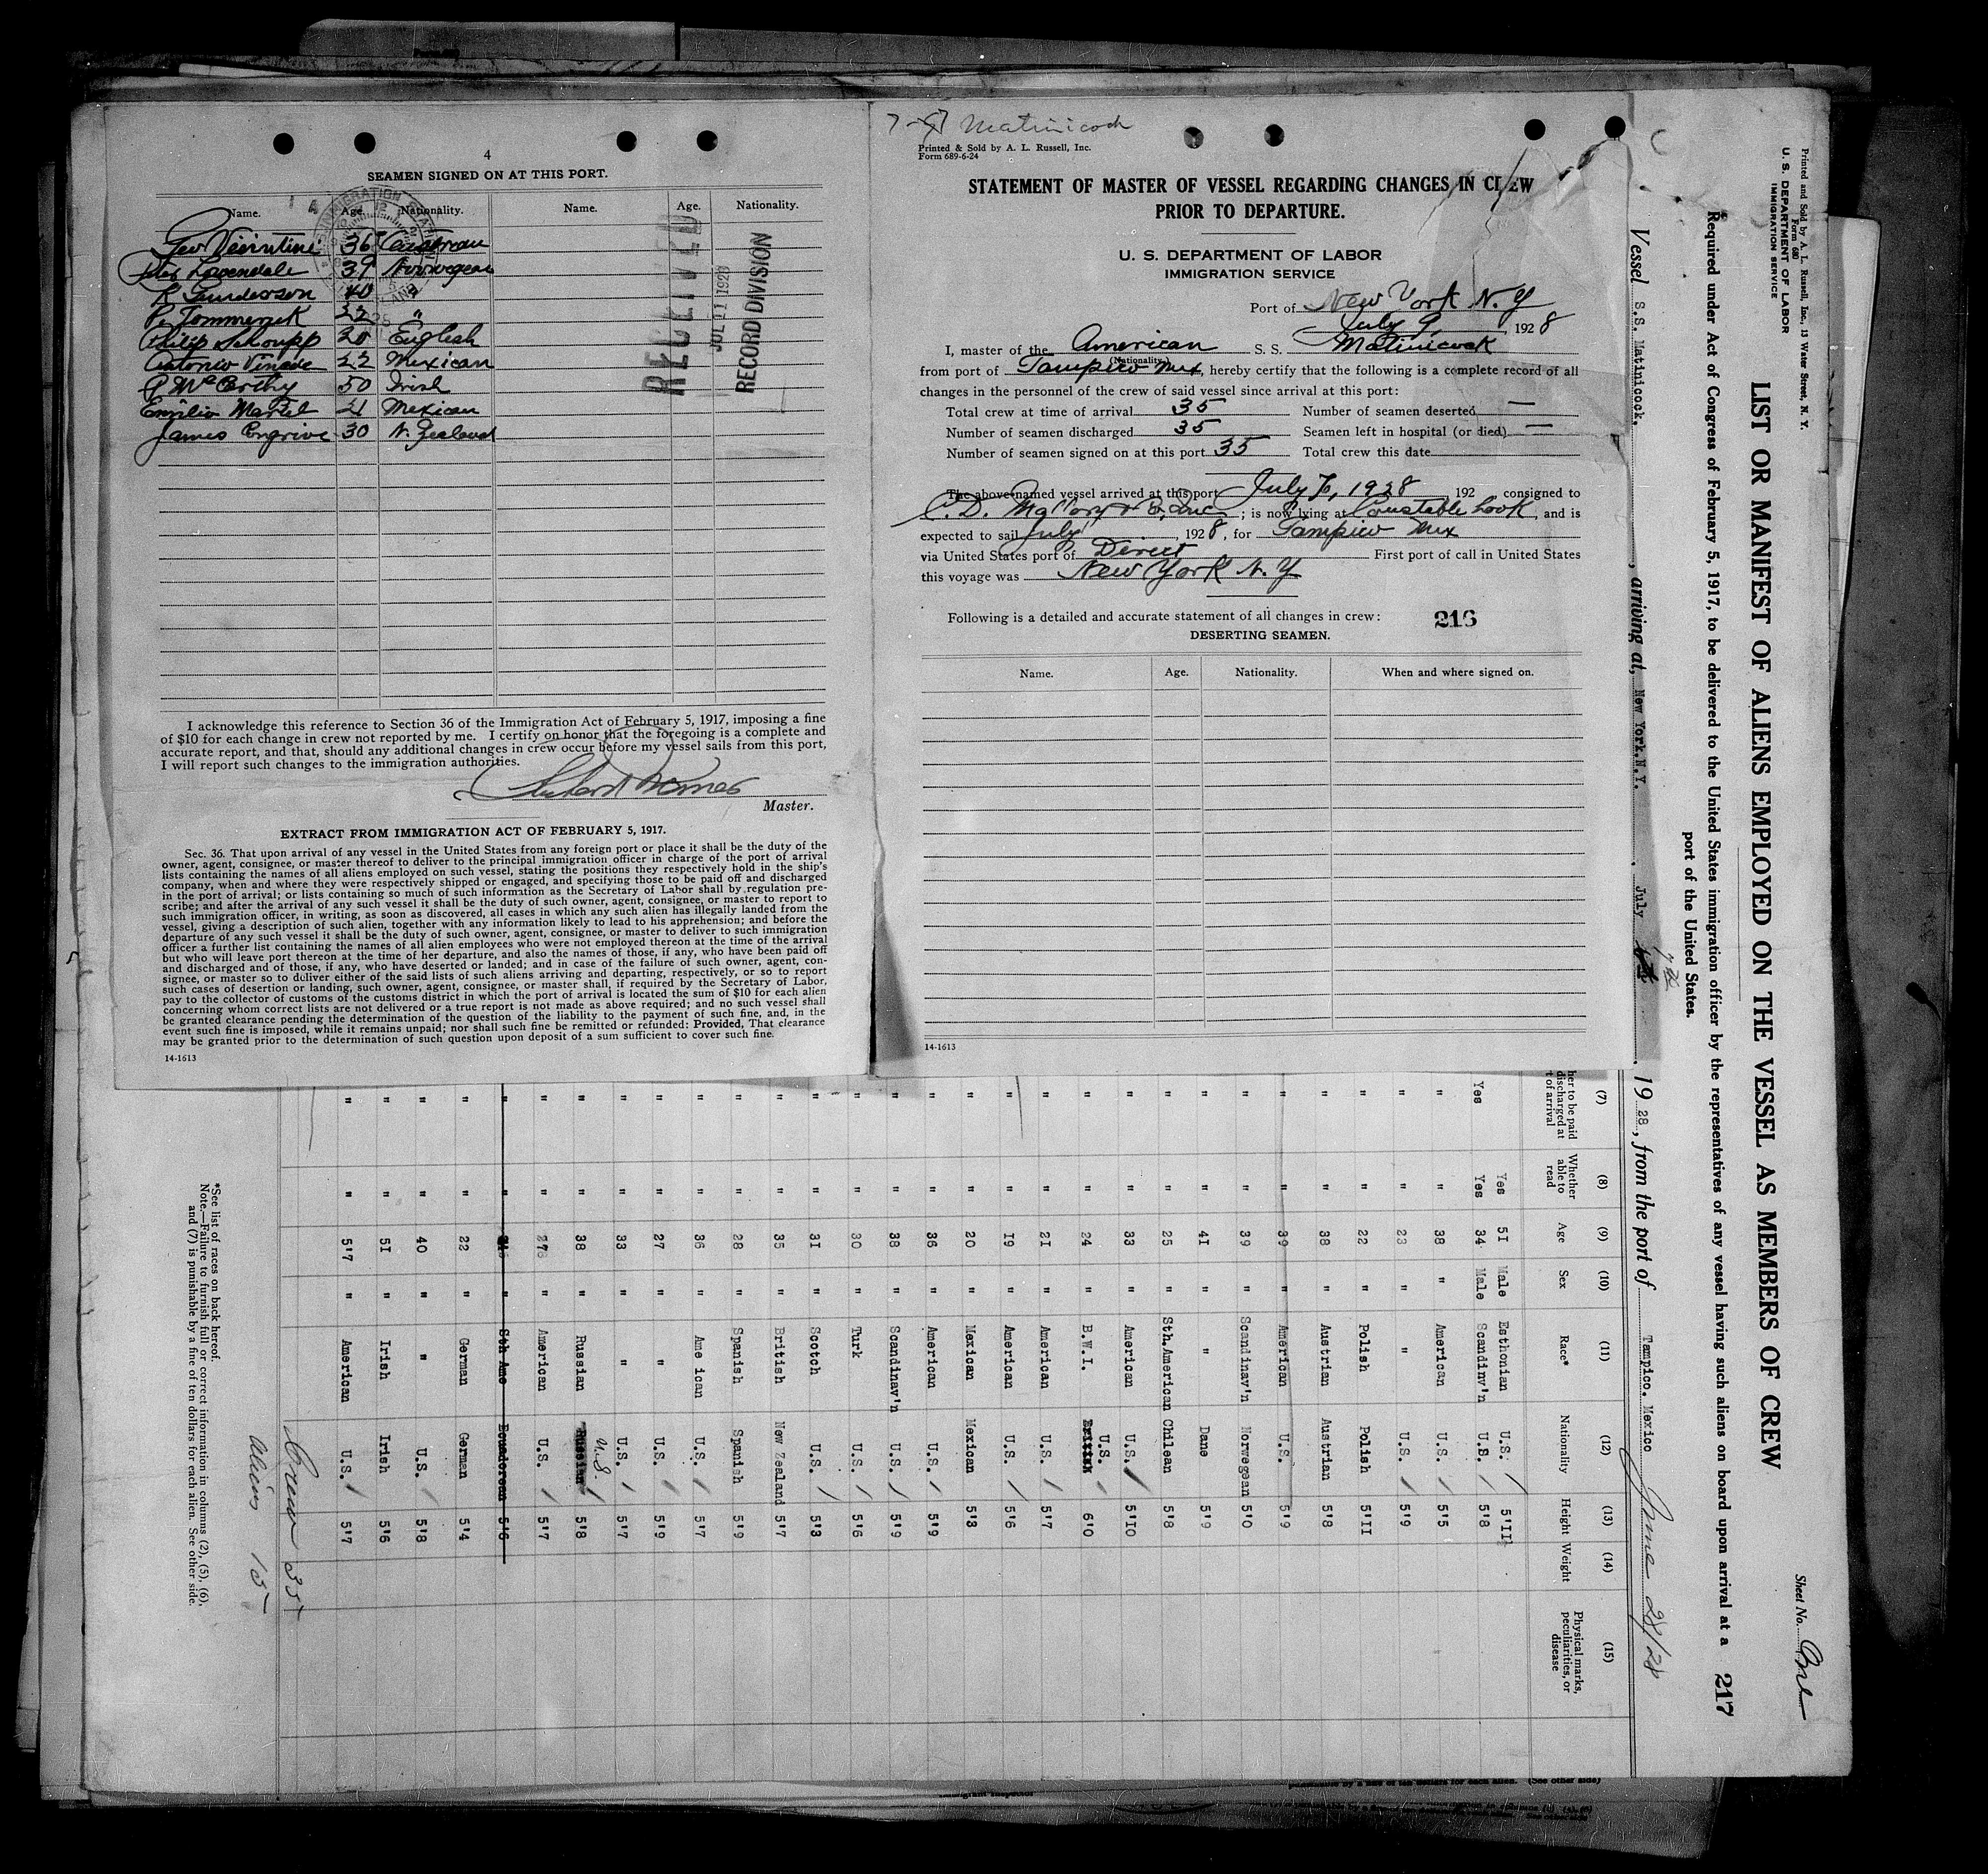 4
SEAMEN SIGNED ON AT THIS PORT.
Name. Age. Nationality. Name. Age. Nationality.
Geo 36
Lavendale 39 Norwegean
R Gunderson 40 "
P. 22 "
Philip Schoupp 20 English
Antonio 22 Mexican
P McCarthy 50 Irish
Emilio Martel 21 Mexican
James 30 N. Zealand
RECEIVED
JUL 11 1928
RECORD DIVISION
I acknowledge this reference to Section 36 of the Immigration Act of February 5, 1917, imposing a fine
of $10 for each change in crew not reported by me. I certify on honor that the foregoing is a complete and
accurate report, and that, should any additional changes in crew occur before my vessel sails from this port,
I will report such changes to the immigration authorities.
Master.
EXTRACT FROM IMMIGRATION ACT OF FEBRUARY 5, 1917.
Sec. 36. That upon arrival of any vessel in the United States from any foreign port or place it shall be the duty of the
owner, agent, consignee, or master thereof to deliver to the principal immigration officer in charge of the port of arrival
lists containing the names of all aliens employed on such vessel, stating the positions they respectively hold in the ship's
company, when and where they were respectively shipped or engaged, and specifying those to be paid off and discharged
in the port of arrival; or lists containing so much of such information as the Secretary of Labor shall by regulation pre-
scribe; and after the arrival of any such vessel it shall be the duty of such owner, agent, consignee, or master to report to
such immigration officer, in writing, as soon as discovered, all cases in which any such alien has illegally landed from the
vessel, giving a description of such alien, together with any information likely to lead to his apprehension; and before the
departure of any such vessel it shall be the duty of such owner, agent, consignee, or master to deliver to such immigration
officer a further list containing the names of all alien employees who were not employed thereon at the time of the arrival
but who will leave port thereon at the time of her departure, and also the names of those, if any, who have been paid off
and discharged and of those, if any, who have deserted or landed; and in case of the failure of such owner, agent, con-
signee, or master so to deliver either of the said lists of such aliens arriving and departing, respectively, or so to report
such cases of desertion or landing, such owner, agent, consignee, or master shall, if required by the Secretary of Labor,
pay to the collector of customs of the customs district in which the port of arrival is located the sum of $10 for each alien
concerning whom correct lists are not delivered or a true report is not made as above required; and no such vessel shall
be granted clearance pending the determination of the question of the liability to the payment of such fine, and, in the
event such fine is imposed, while it remains unpaid; nor shall such fine be remitted or refunded: Provided, That clearance
may be granted prior to the determination of such question upon deposit of a sum sufficient to cover such fine.
14-1613
Matinicock
Printed & Sold by A. L. Russell, Inc.
Form 689-6-24
STATEMENT OF MASTER OF VESSEL REGARDING CHANGES IN CREW
PRIOR TO DEPARTURE.
U. S. DEPARTMENT OF LABOR
IMMIGRATION SERVICE
Port of New York N. Y
July 9, 1928
I, master of the American S. S. Matinicock
(Nationality)
from port of Tampico Mex, hereby certify that the following is a complete record of all
changes in the personnel of the crew of said vessel since arrival at this port:
Total crew at time of arrival 35 Number of seamen deserted —
Number of seamen discharged 35 Seamen left in hospital (or died) —
Number of seamen signed on at this port 35 Total crew this date
The above-named vessel arrived at this port July 7, 1928 192 consigned to
C. D. Mallory & Co, Inc ; is now lying at Constable Hook, and is
expected to sail July , 1928, for Tampico Mex
via United States port of Direct First port of call in United States
this voyage was New York N. Y
Following is a detailed and accurate statement of all changes in crew: 216
DESERTING SEAMEN.
Name. Age. Nationality. When and where signed on.
14-1613
Printed and Sold by A. L. Russell, Inc., 13 Water Street, N. Y.
Form 680
U. S. DEPARTMENT OF LABOR
IMMIGRATION SERVICE
Sheet No. One
LIST OR MANIFEST OF ALIENS EMPLOYED ON THE VESSEL AS MEMBERS OF CREW
Required under Act of Congress of February 5, 1917, to be delivered to the United States immigration officer by the representatives of any vessel having such aliens on board upon arrival at a
port of the United States.
217
Vessel S.S. Matinicock. , arriving at, New York.N.Y. , July 7th , 1928, from the port of Tampico. Mexico June 28/28
(7) (8) (9) (10) (11) (12) (13) (14) (15)
her to be paid discharged at t of arrival Whether able to read Age Sex Race* Nationality Height Weight Physical marks, peculiarities, or disease
Yes 51 Male Esthonian U.S. 5'11½
Yes Yes 34 Male Scandinv'n U.S. 5'8
" " 38 " American U.S. 5'5
" " 23 " " U.S. 5'9
" " 22 " Polish Polish 5'11
" " 38 " Austrian Austrian 5'8
" " 39 " American U.S. 5'9
" " 39 " Scandinav'n Norwegean 5'0
" " 41 " " Dane 5'9
" " 25 " Sth.American Chilean 5'8
" " 33 " American U.S. 5'10
" " 24 " B.W.I. British U.S. 6'0
" " 21 " American U.S. 5'7
" " 19 " American U.S. 5'6
" " 20 " Mexican Mexican 5'3
" " 36 " American U.S. 5'9
" " 38 " Scandinav'n U.S. 5'9
" " 30 " Turk U.S. 5'6
" " 31 " Scotch U.S. 5'3
" " 35 " British New Zealand 5'7
" " 28 " Spanish Spanish 5'9
" " 36 " Ame ican U.S. 5'7
" " 27 " " U.S. 5'9
" " 33 " " U.S. 5'7
" " 38 " Russian Russian U.S. 5'8
" " 27 " American U.S. 5'7
" " " Sth Ame Ecuadorean 5'6
" " 22 " German German 5'4
" " 40 " " U.S. 5'8
" " 51 " Irish Irish 5'6
" " 5'7 " American U.S. 5'7
Crew 35
Aliens 15
*See list of races on back hereof.
Note.—Failure to furnish full or correct information in columns (2), (5), (6),
and (7) is punishable by a fine of ten dollars for each alien. See other side.